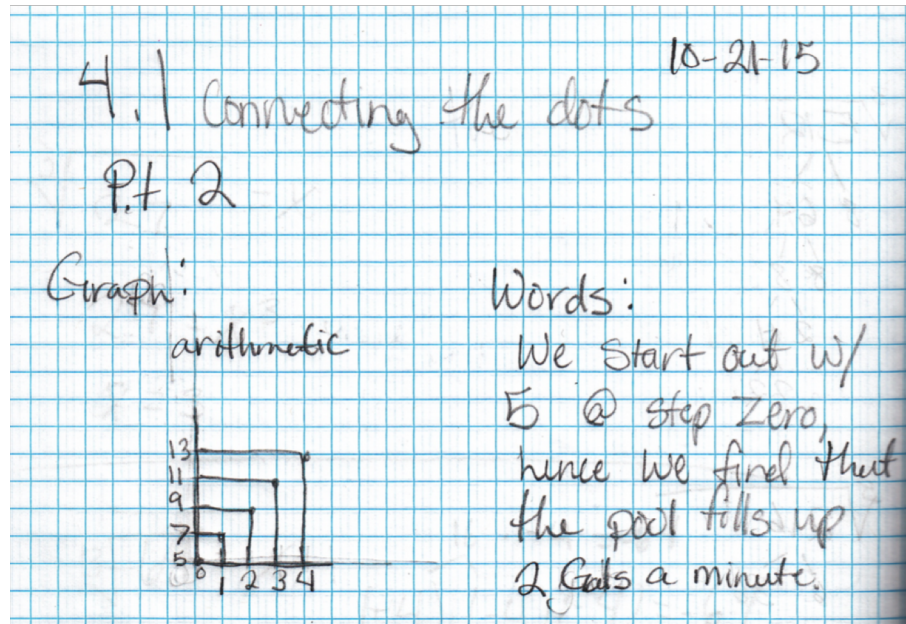 10-21-15
4.1 Connecting the dots
P.t. 2
Graph:
arithmetic
13
11
9
7
5
0 1 2 3 4
Words:
We Start out w/
5 @ step zero,
hence we find that
the pool fills up
2 Gals a minute.